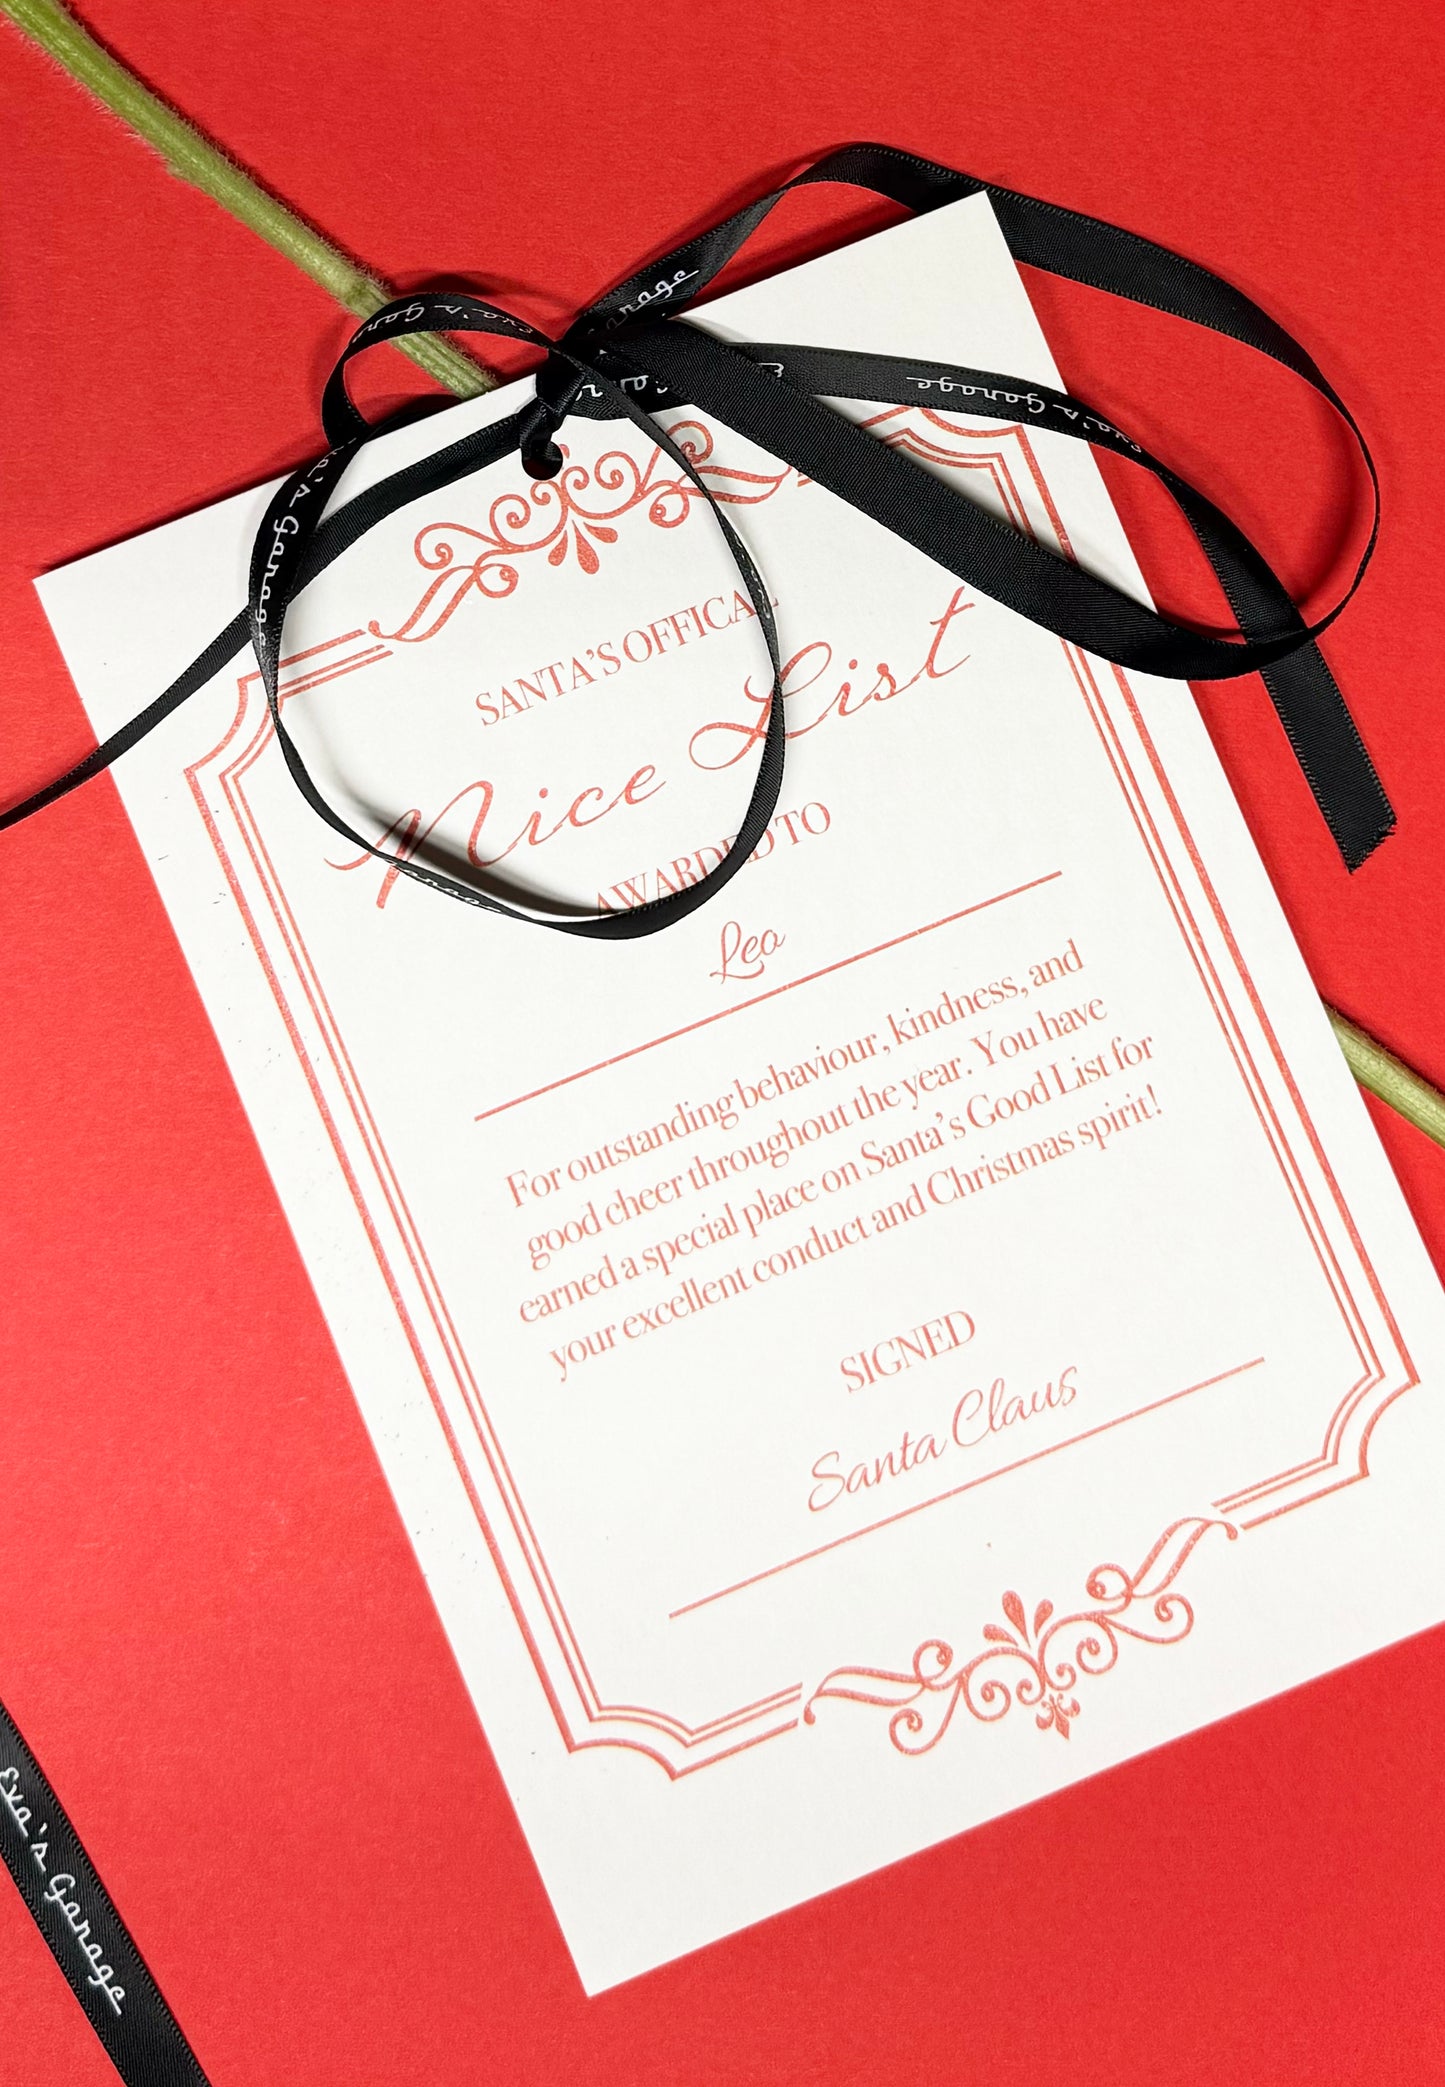 Eva's Garage
SANTA'S OFFICAL
Nice List
AWARDED TO
Leo
For outstanding behaviour, kindness, and
good cheer throughout the year. You have
earned a special place on Santa's Good List for
your excellent conduct and Christmas spirit!
SIGNED
Santa Claus
Eva's Garage
Eva's Garage
Eva's Garage
Garage